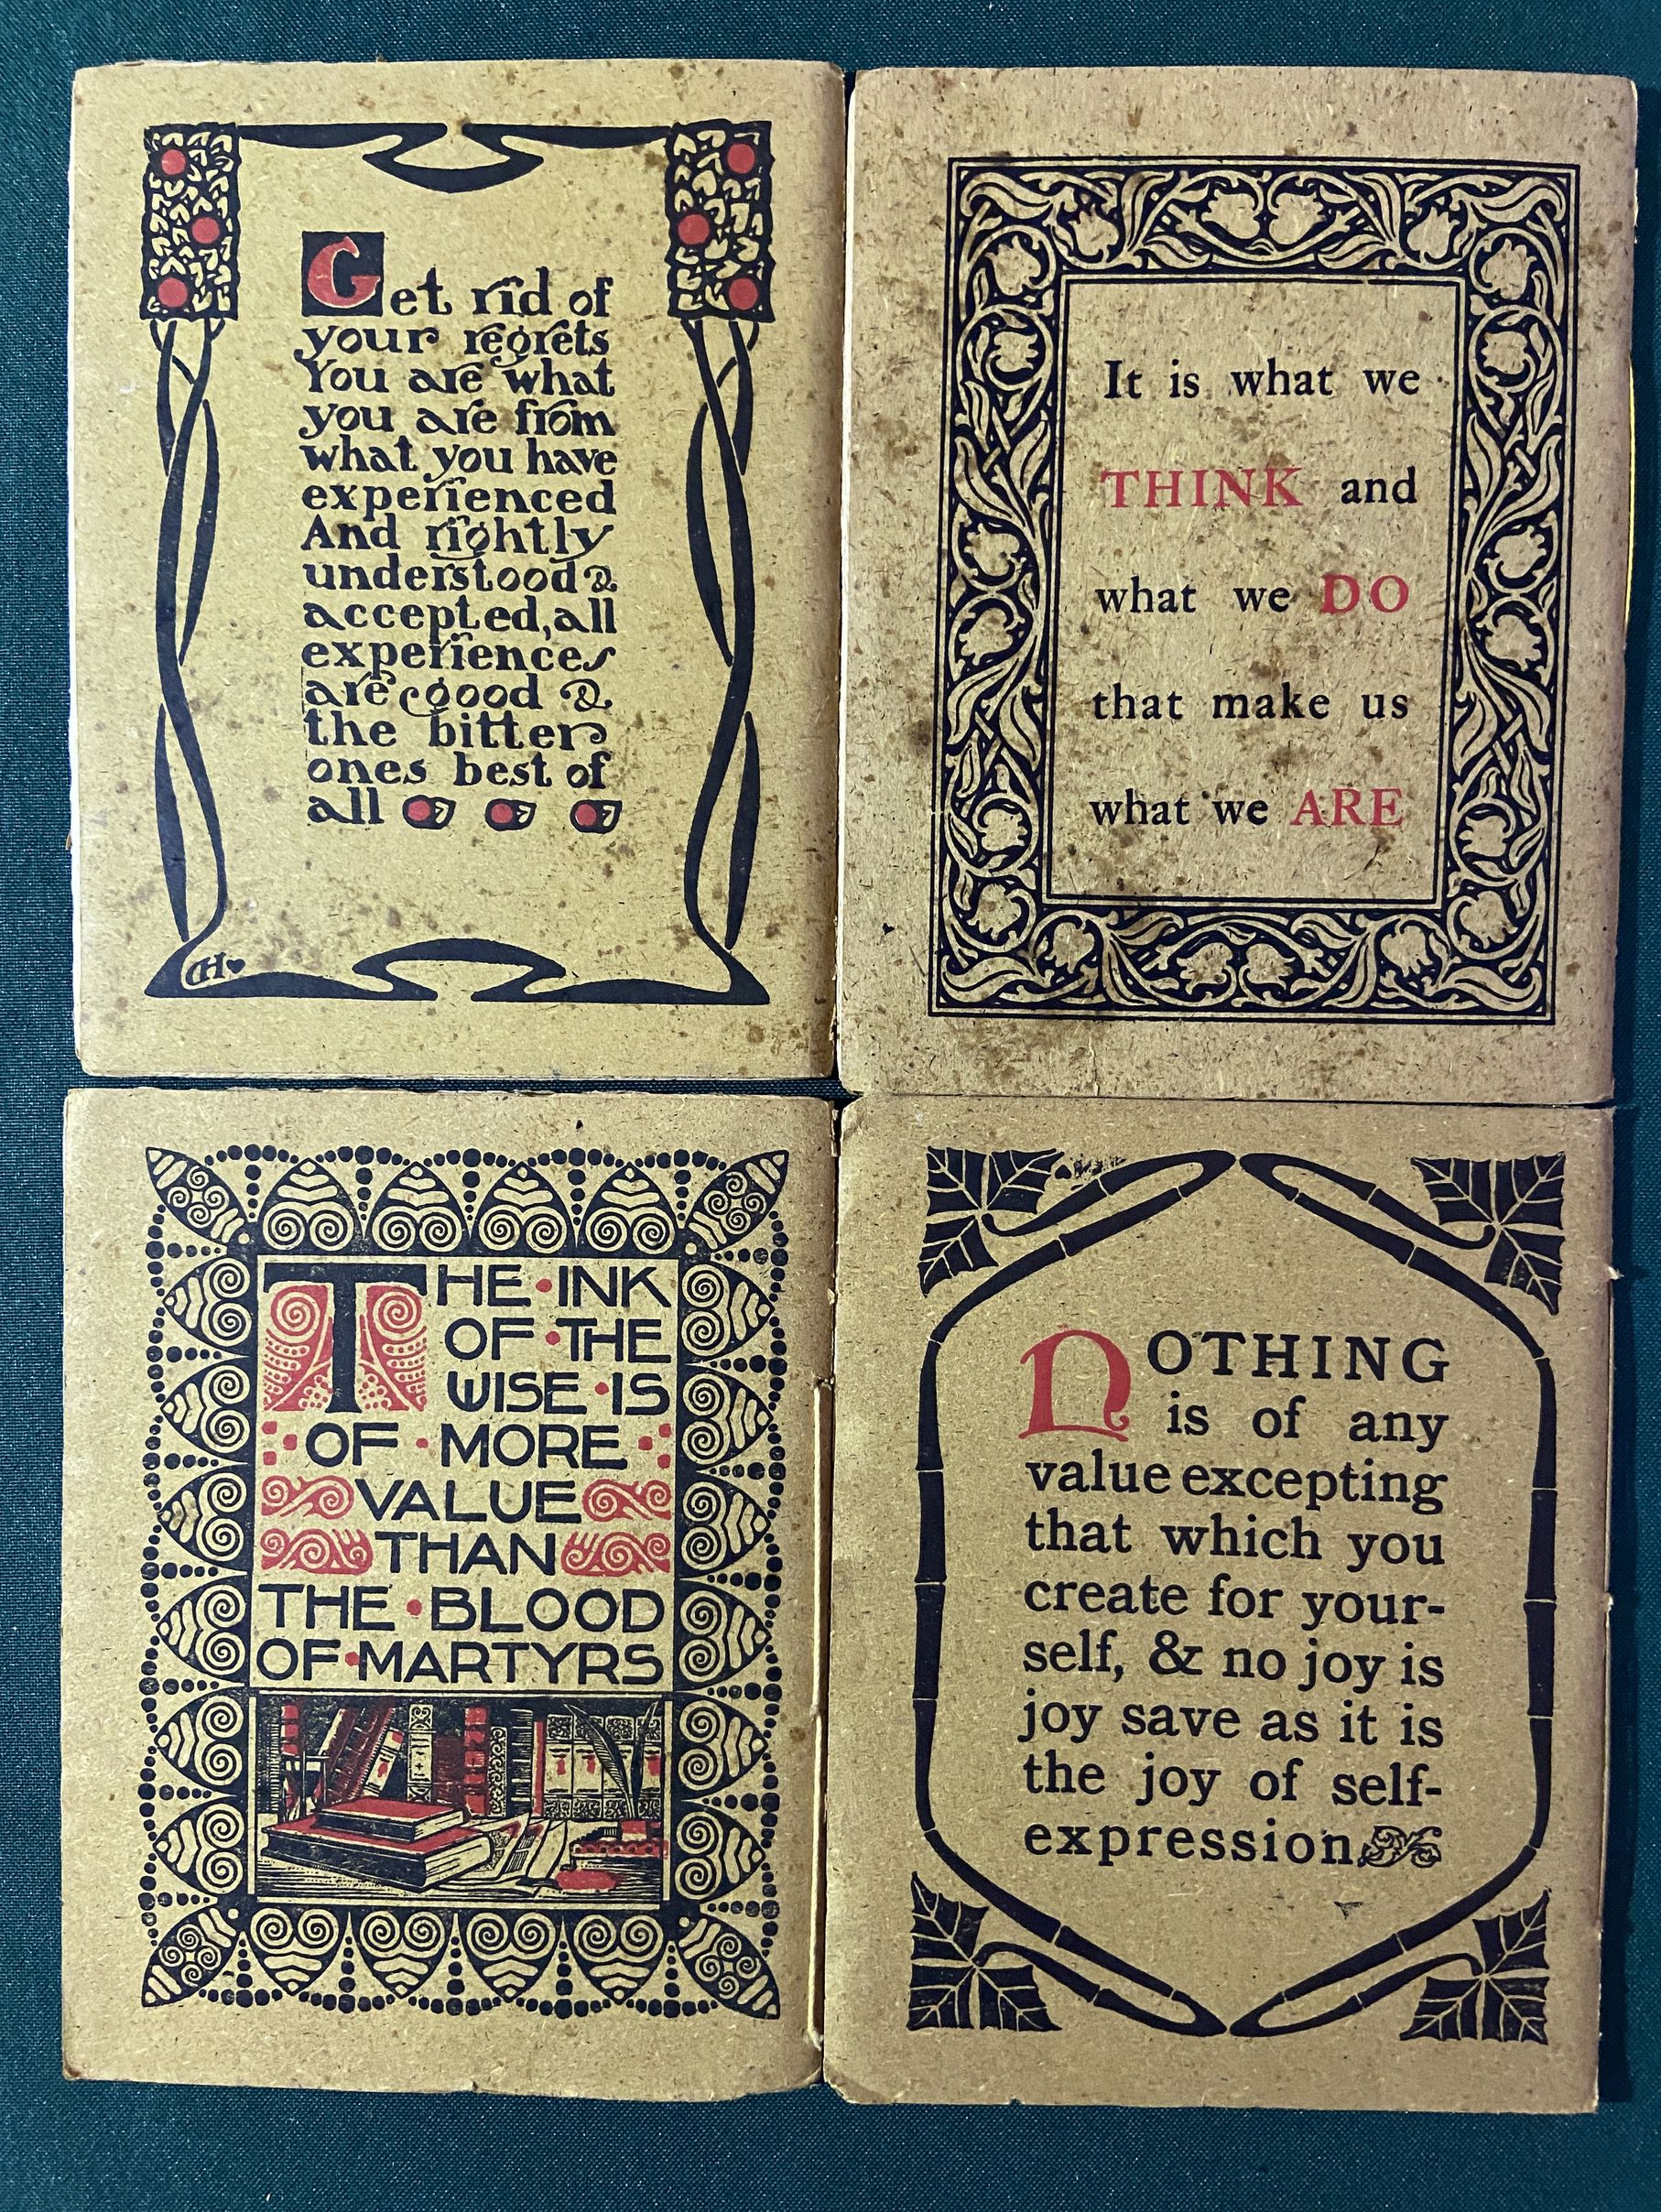 Get rid of
your regrets
You are what
you are from
what you have
experienced
And rightly
understood &
accepted, all
experiences
are good &
the bitter
ones best of
all
DH
It is what we
THINK and
what we DO
that make us
what we ARE
THE·INK
OF·THE
WISE·IS
OF·MORE
VALUE
THAN
THE·BLOOD
OF·MARTYRS
NOTHING
is of any
value excepting
that which you
create for your-
self, & no joy is
joy save as it is
the joy of self-
expression